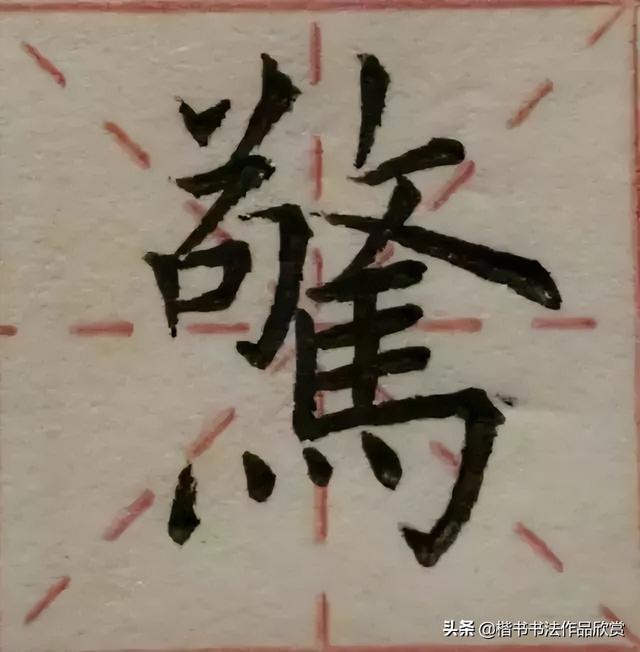 驚
头条 @楷书书法作品欣赏